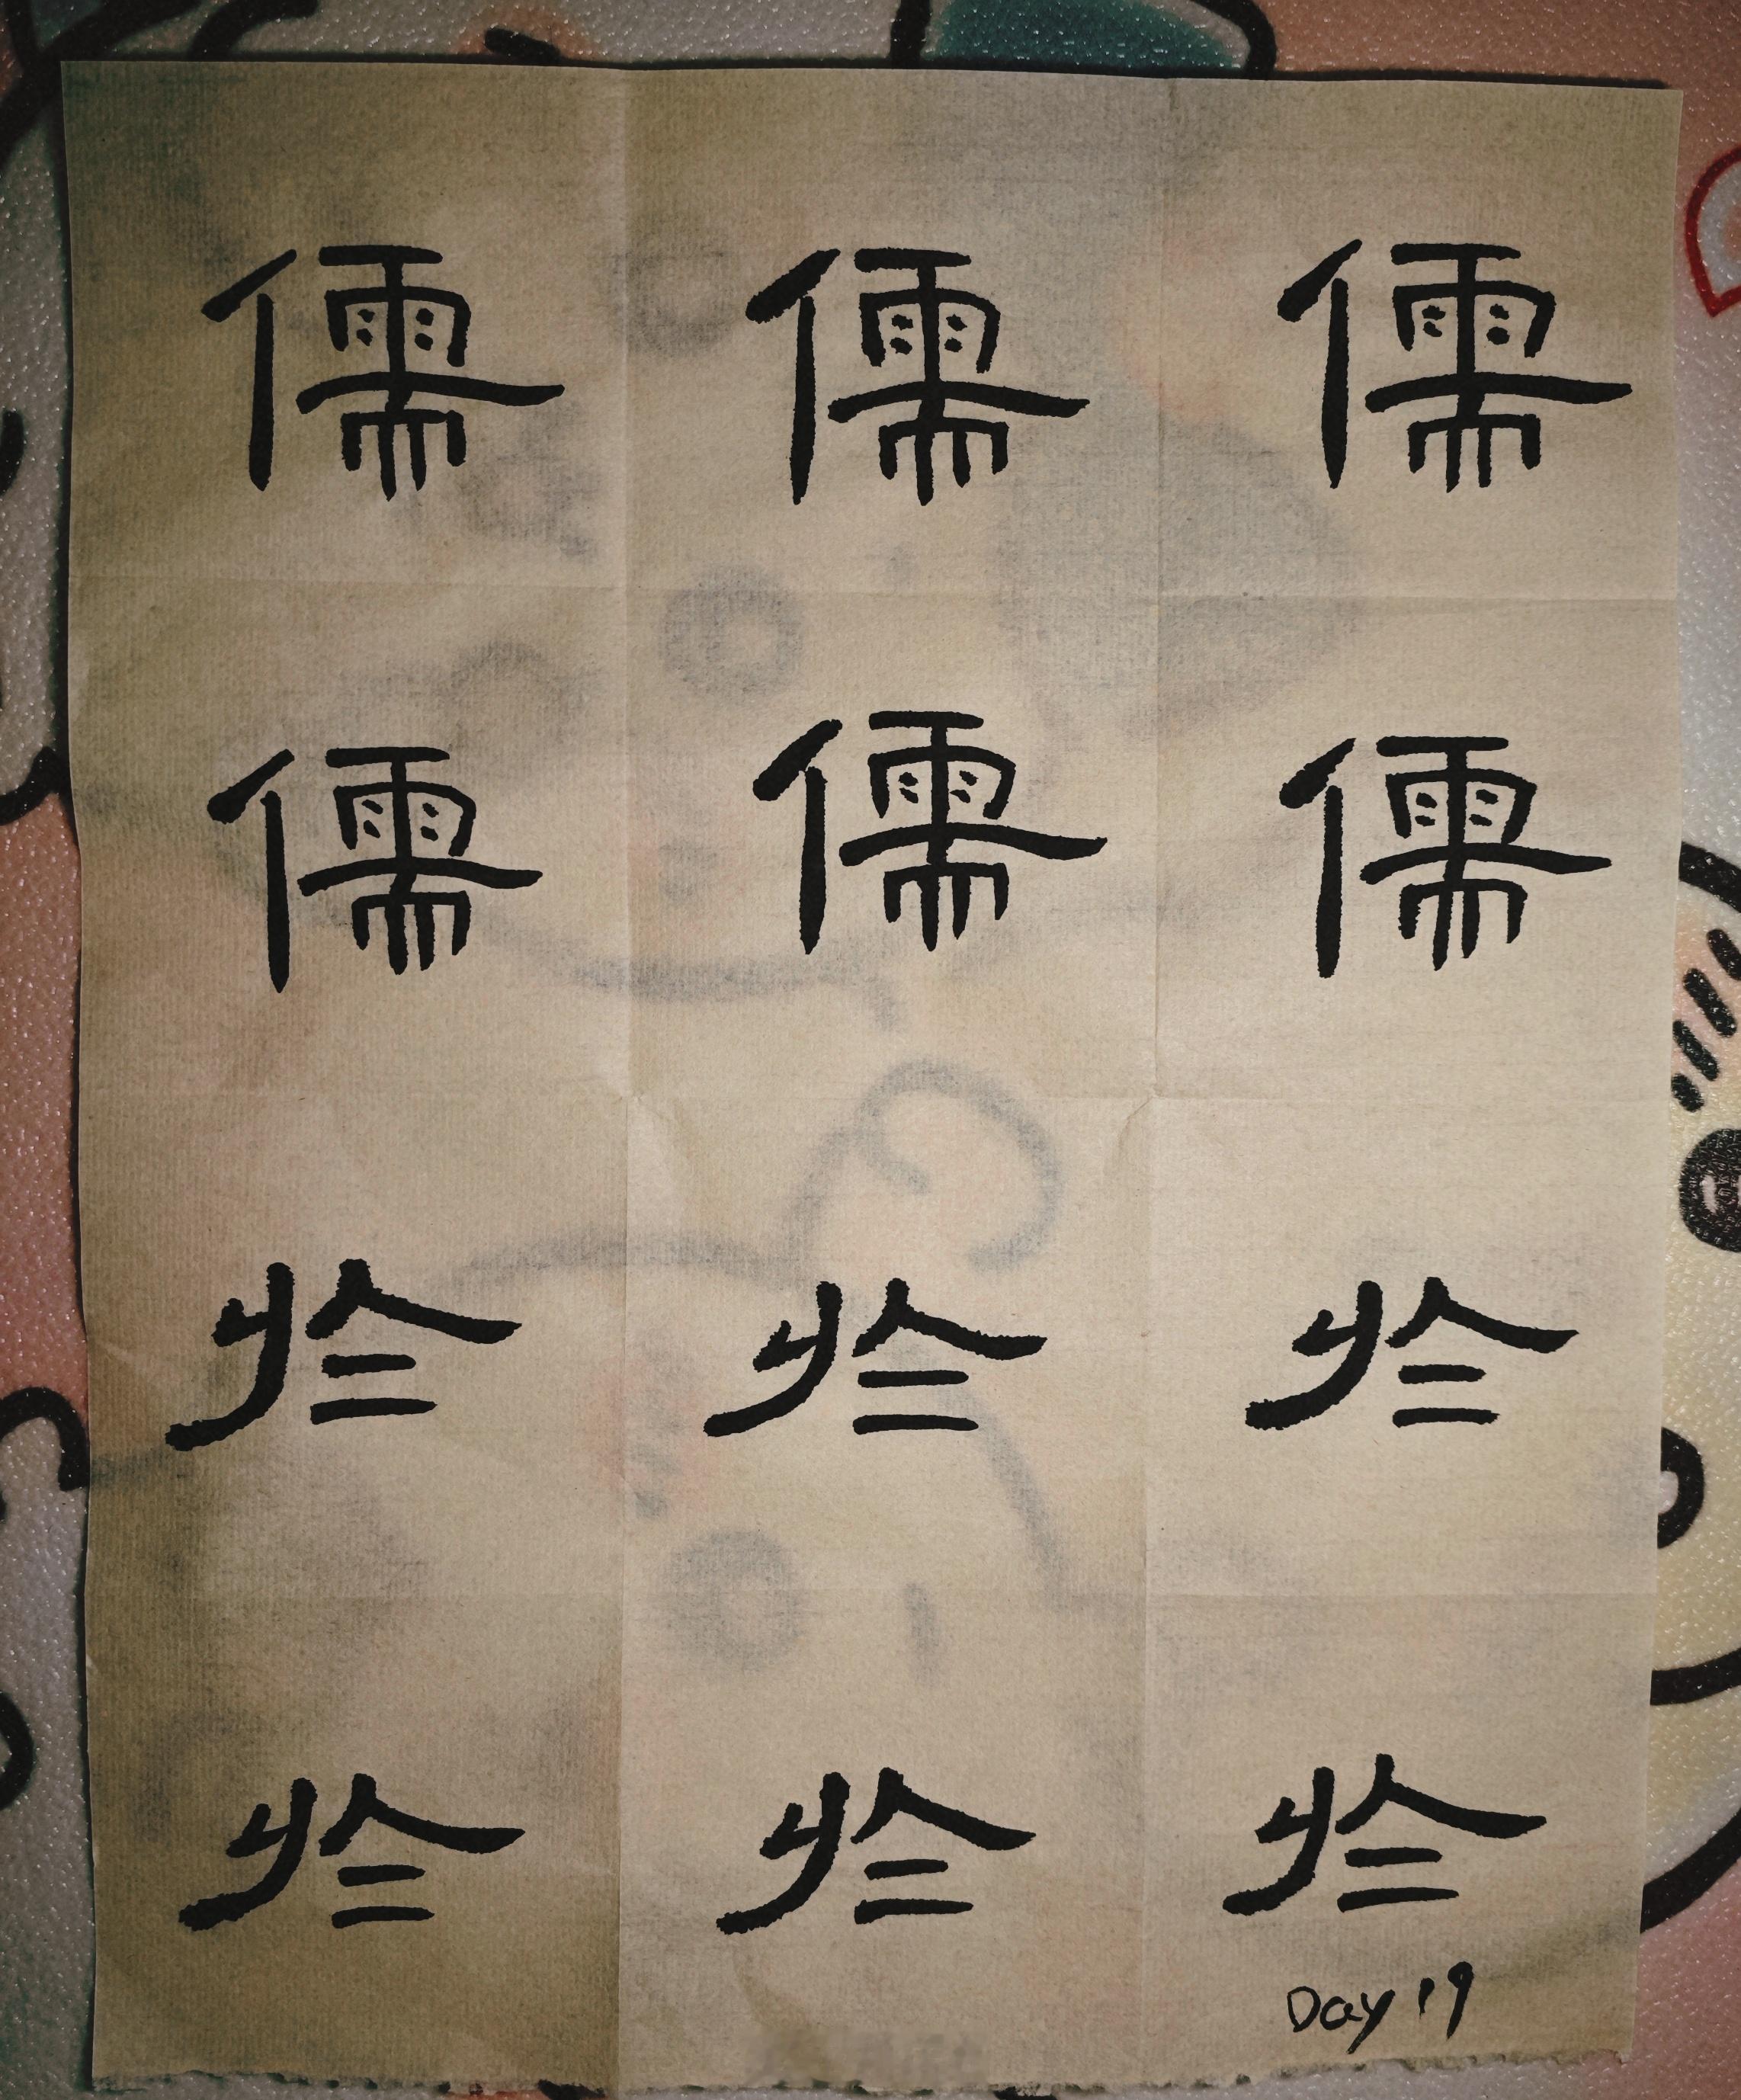 儒 儒 儒
儒 儒 儒
於 於 於
於 於 於
Day 19